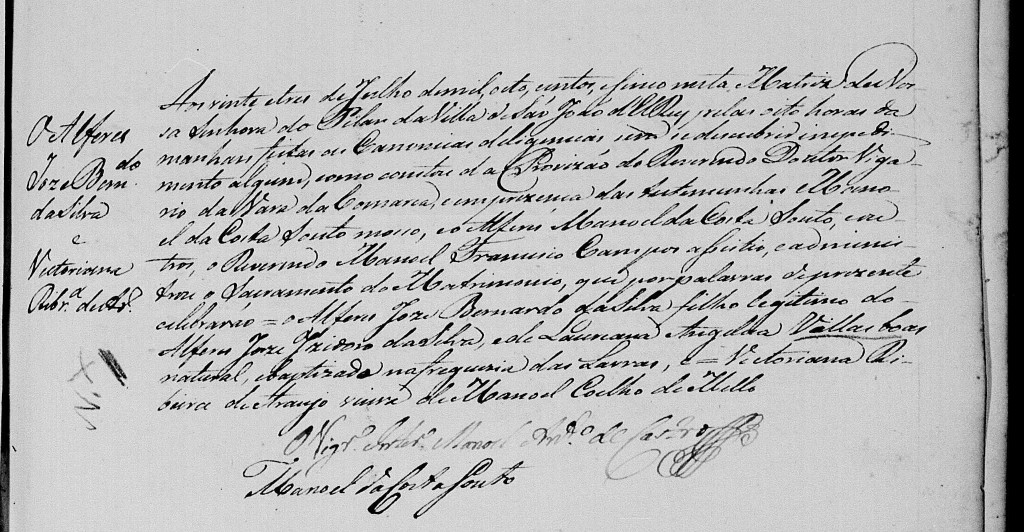 O Alferes
Joze Berndo.
da Silva
e
Victoriana
Ribra. de Ar.
Aos vinte e tres de Julho de mil, oito, centos, e sinco nesta Matriz de Nos-
sa Senhora do Pilar da Villa de São João d'ElRey, pelas oito horas da
manhan, feitas as Canonicas deligencias sem se descubrir impedi-
mento algum, como consta da Provizão do Reverendo Doutor Viga-
rio da Vara da Comarca, em prezenca das testemunhas Mano-
el da Costa Souto mosso, e o Alferes Manoel da Costa Souto, e ou-
tros, o Reverendo Manoel Francisco Campos assistio, e adminis-
trou o Sacramento do Matrimonio, que por palavras de prezente
celebrarão = o Alferes Joze Bernardo da Silva filho legitimo do
Alferes Joze Izidoro da Silva, e de Laureana Angelica Villas boas
natural, e baptizado na freguezia das Lavras, e = Victoriana Ri-
beira de Araujo viuva de Manoel Coelho de Mello
O Vigro. Manoel Anto. de Castro
Manoel da Costa Souto